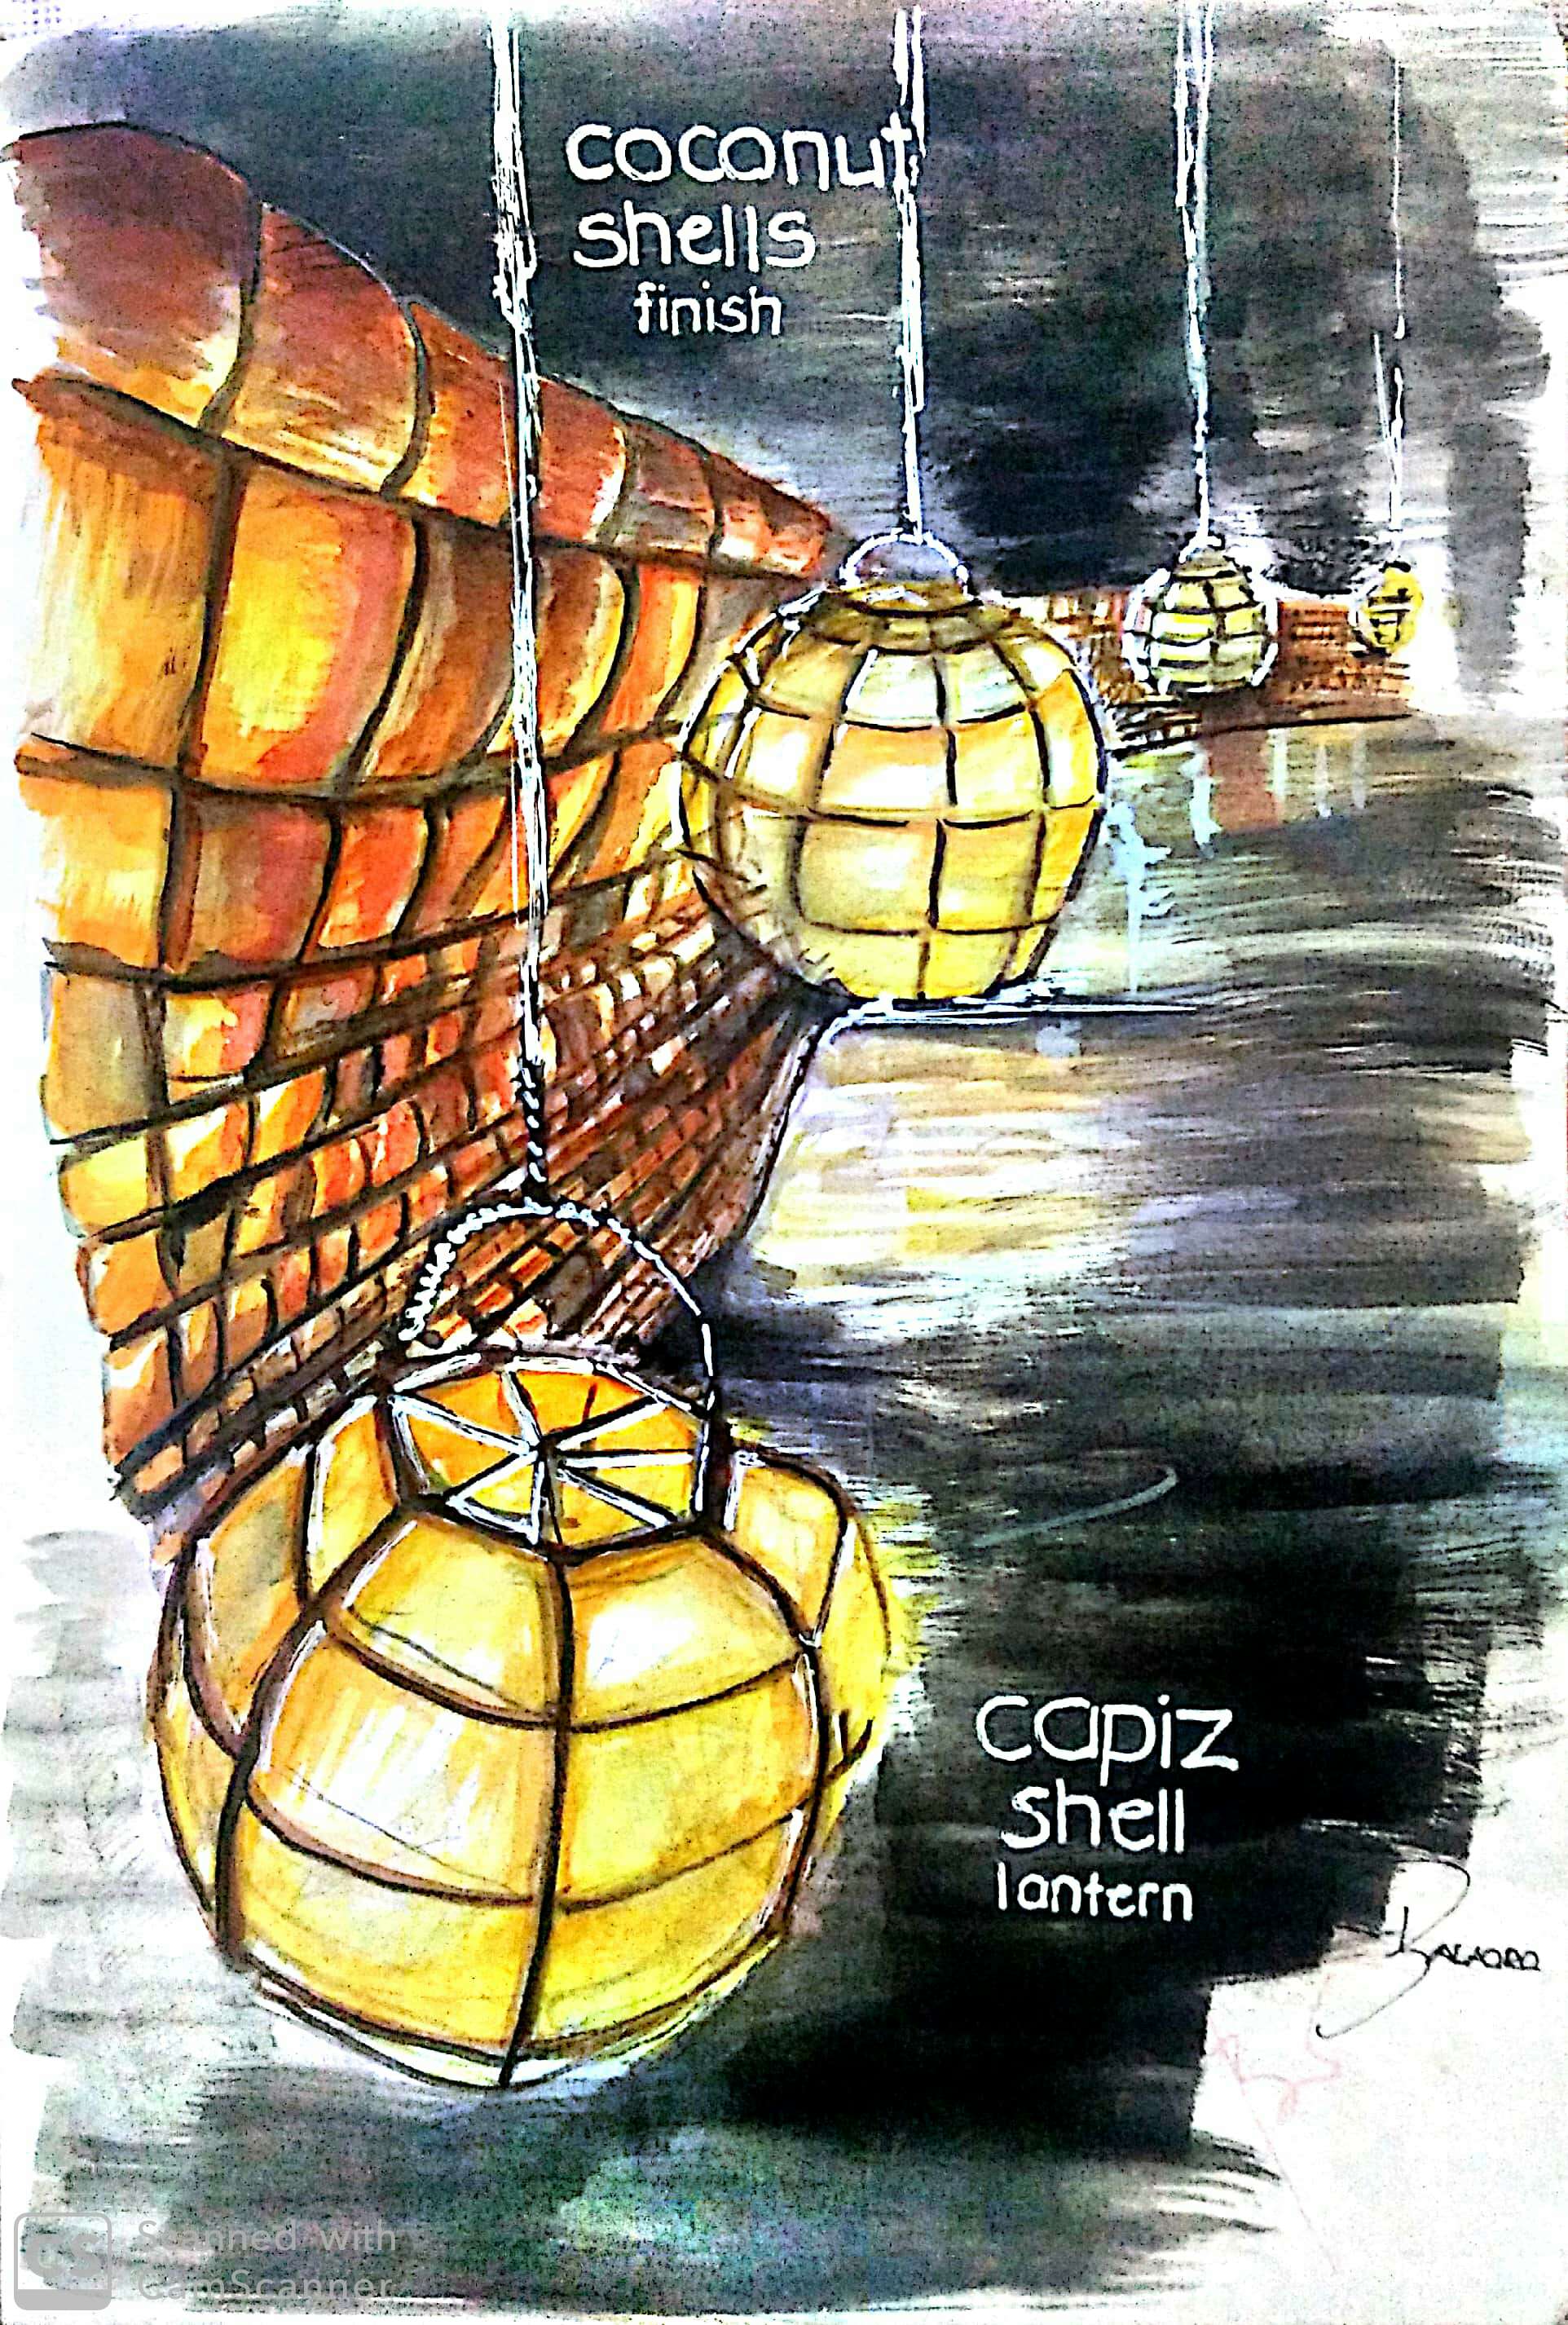 coconut
shells
finish
capiz
shell
lantern
CS
Scanned with
CamScanner